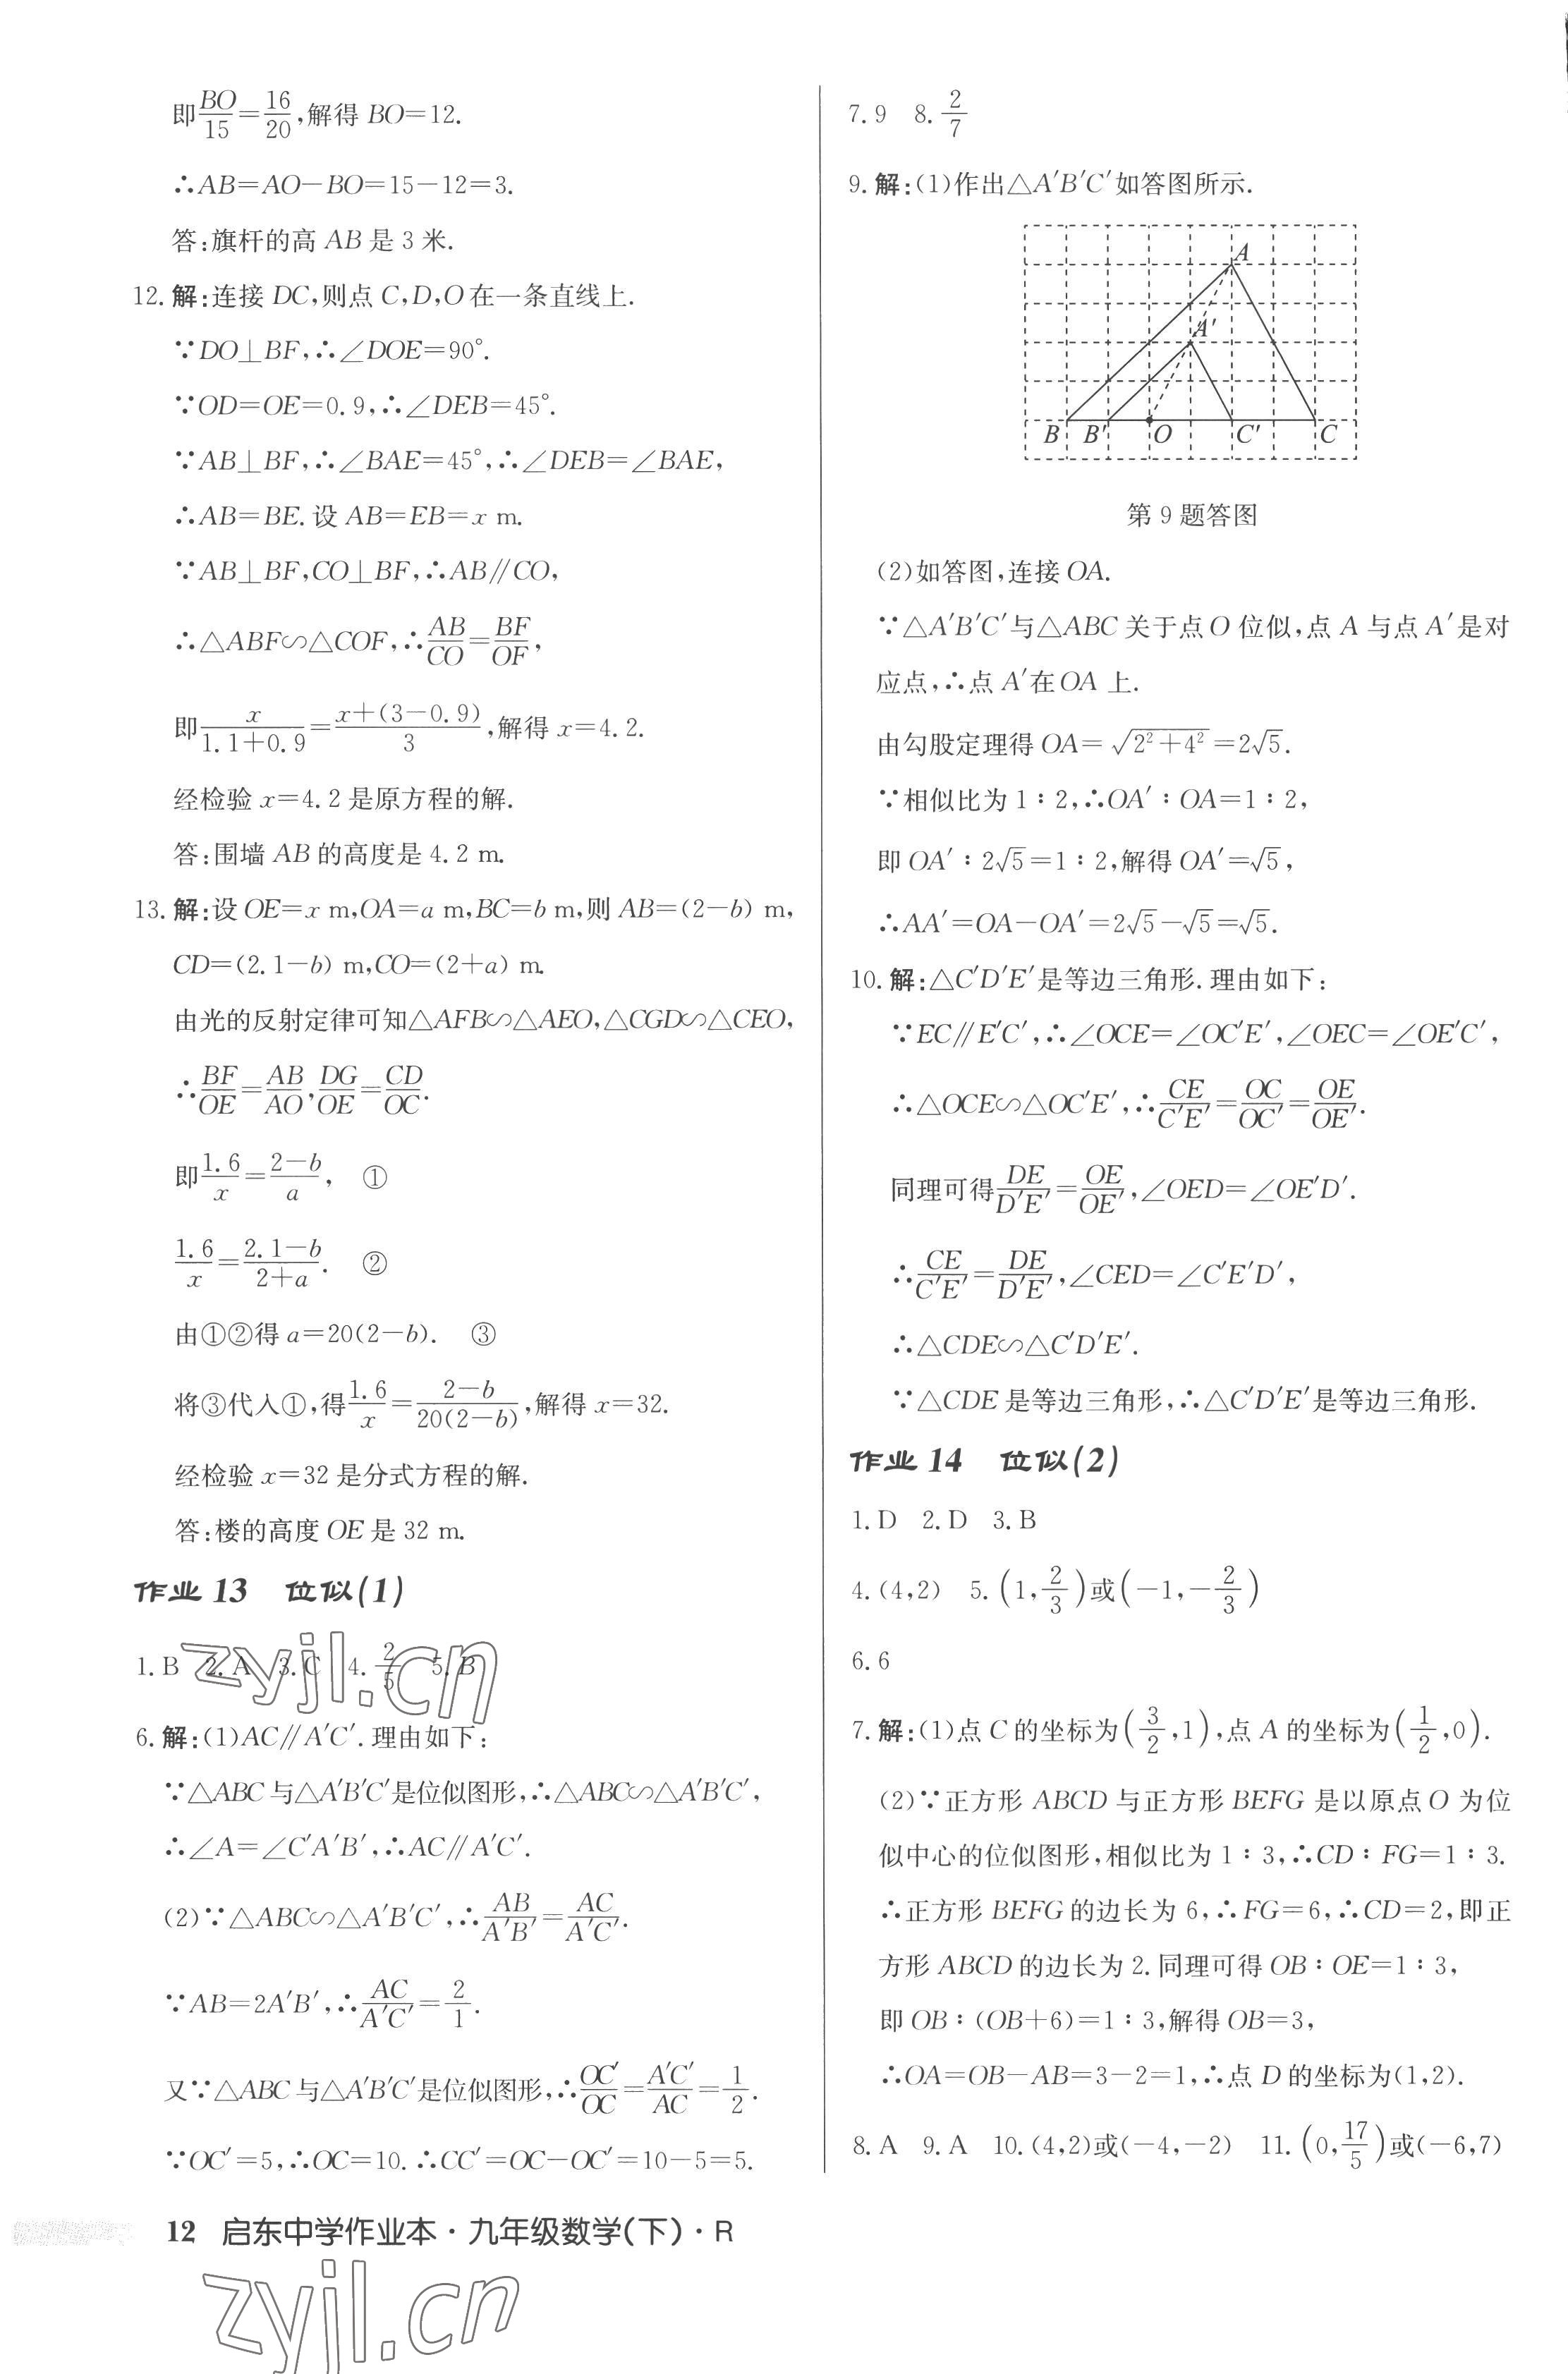 即BO/15=16/20,解得 BO=12.
∴AB=AO-BO=15-12=3.
答:旗杆的高 AB 是 3 米.
12. 解:连接 DC,则点 C,D,O在一条直线上.
∵DO⊥BF,∴∠DOE=90°.
∵OD=OE=0.9,∴∠DEB=45°.
∵AB⊥BF,∴∠BAE=45°,∴∠DEB=∠BAE,
∴AB=BE.设 AB=EB=x m.
∵AB⊥BF,CO⊥BF,∴AB∥CO,
∴△ABF∽△COF,∴AB/CO=BF/OF,
即x/(1.1+0.9)=(x+(3-0.9))/3,解得 x=4.2.
经检验 x=4.2 是原方程的解.
答:围墙 AB 的高度是 4.2 m.
13. 解:设 OE=x m,OA=a m,BC=b m,则 AB=(2-b) m,
CD=(2.1-b) m,CO=(2+a) m.
由光的反射定律可知△AFB∽△AEO,△CGD∽△CEO,
∴BF/OE=AB/AO,DG/OE=CD/OC.
即1.6/x=(2-b)/a, ①
1.6/x=(2.1-b)/(2+a). ②
由①②得 a=20(2-b). ③
将③代入①,得1.6/x=(2-b)/(20(2-b)),解得 x=32.
经检验 x=32 是分式方程的解.
答:楼的高度 OE 是 32 m.
作业 13 位似(1)
1. B 2. A 3. C 4. 2/5 5. B
6. 解:(1)AC∥A′C′.理由如下:
∵△ABC与△A′B′C′是位似图形,∴△ABC∽△A′B′C′,
∴∠A=∠C′A′B′,∴AC∥A′C′.
(2)∵△ABC∽△A′B′C′,∴AB/A′B′=AC/A′C′.
∵AB=2A′B′,∴AC/A′C′=2/1.
又∵△ABC与△A′B′C′是位似图形,∴OC′/OC=A′C′/AC=1/2.
∵OC′=5,∴OC=10.∴CC′=OC-OC′=10-5=5.
7. 9 8. 2/7
9. 解:(1)作出△A′B′C′如答图所示.
A
A′
B B′ O C′ C
第 9 题答图
(2)如答图,连接 OA.
∵△A′B′C′与△ABC 关于点 O 位似,点 A 与点 A′是对
应点,∴点 A′在 OA 上.
由勾股定理得 OA=√(2²+4²)=2√5.
∵相似比为 1∶2,∴OA′∶OA=1∶2,
即 OA′∶2√5=1∶2,解得 OA′=√5,
∴AA′=OA-OA′=2√5-√5=√5.
10. 解:△C′D′E′是等边三角形.理由如下:
∵EC∥E′C′,∴∠OCE=∠OC′E′,∠OEC=∠OE′C′,
∴△OCE∽△OC′E′,∴CE/C′E′=OC/OC′=OE/OE′.
同理可得DE/D′E′=OE/OE′,∠OED=∠OE′D′.
∴CE/C′E′=DE/D′E′,∠CED=∠C′E′D′,
∴△CDE∽△C′D′E′.
∵△CDE 是等边三角形,∴△C′D′E′是等边三角形.
作业 14 位似(2)
1. D 2. D 3. B
4. (4,2) 5. (1,2/3)或(-1,-2/3)
6. 6
7. 解:(1)点 C 的坐标为(3/2,1),点 A 的坐标为(1/2,0).
(2)∵正方形 ABCD 与正方形 BEFG 是以原点 O 为位
似中心的位似图形,相似比为 1∶3,∴CD∶FG=1∶3.
∴正方形 BEFG 的边长为 6,∴FG=6,∴CD=2,即正
方形 ABCD 的边长为 2.同理可得 OB∶OE=1∶3,
即 OB∶(OB+6)=1∶3,解得 OB=3,
∴OA=OB-AB=3-2=1,∴点 D 的坐标为(1,2).
8. A 9. A 10. (4,2)或(-4,-2) 11. (0,17/5)或(-6,7)
12 启东中学作业本·九年级数学(下)·R
zyjl.cn
zyjl.cn